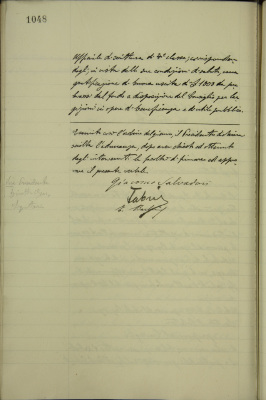 1048
Applicato di scrittura di 4ª classe, corrisponden-
dogli, in vista delle sue condizioni di salute, una
gratificazione di buona uscita di £ 1800 da pre-
levarsi dal fondo a disposizione del Consiglio per lar-
gizioni in opere di beneficenza e di utilità pubblica.
Esaurito così l'ordine del giorno, il Presidente dichiara
sciolta l'adunanza, dopo aver chiesto ed ottenuto
dagli intervenuti la facoltà di firmare ed appro-
vare il presente verbale.
Giacomo Salvadori